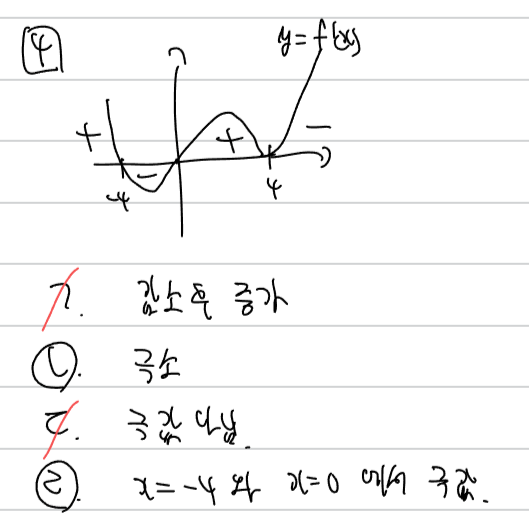 4
y=f(x)
+ - + -
-4 4
ㄱ. 감소후 증가
ㄴ. 극소
ㄷ. 극값 아님.
ㄹ. x=-4 와 x=0 에서 극값.